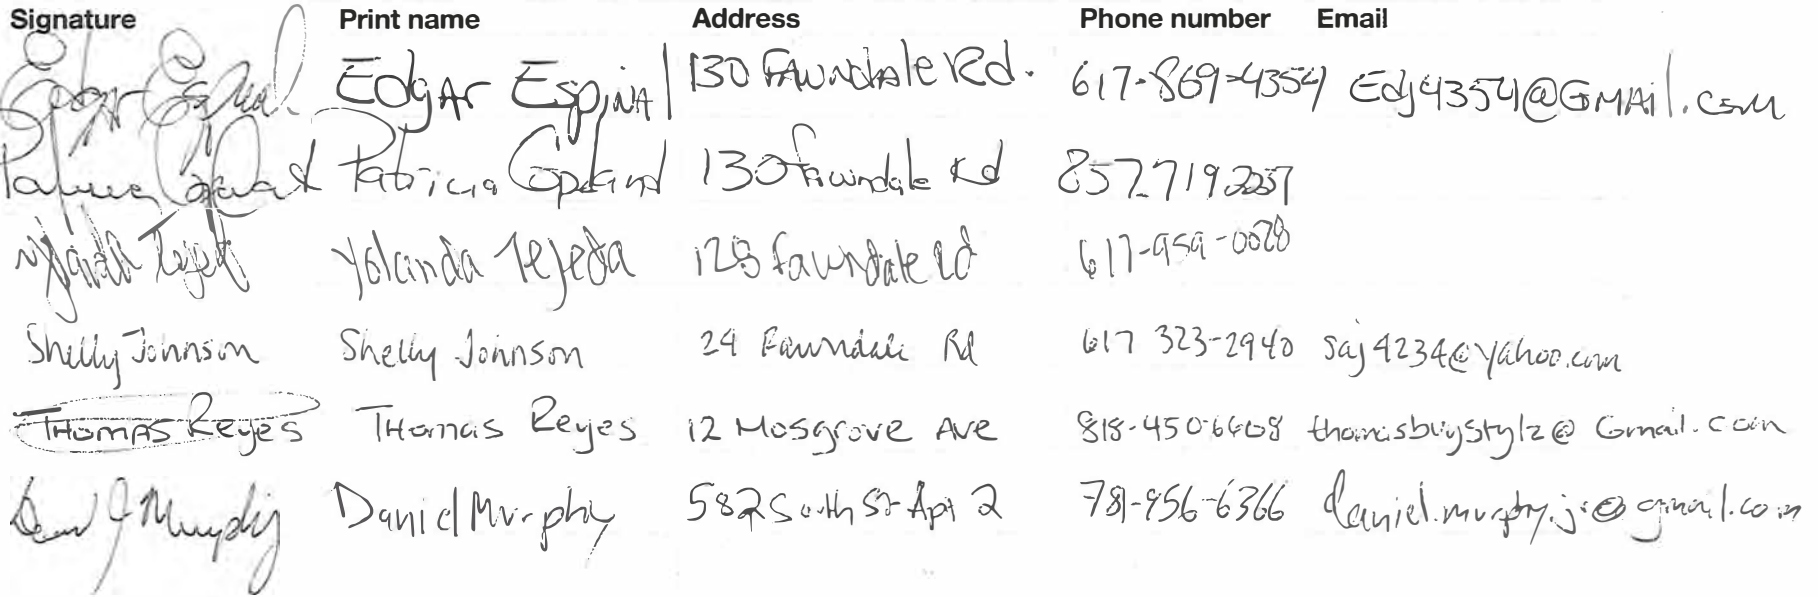 Signature Print name Address Phone number Email
Edgar Espinal Edgar Espinal 130 Fawndale Rd. 617-869-4354 Edj4354@Gmail.com
Patricia Copeland Patricia Copeland 130 fawndale Rd 857 719 2257
Yolanda Tejeda Yolanda Tejeda 128 fawndale rd 617-959-0028
Shelly Johnson Shelly Johnson 24 Fawndale Rd 617 323-2940 saj4234@yahoo.com
Thomas Reyes Thomas Reyes 12 Mosgrove Ave 818-450-6608 thomasbuystylz@Gmail.com
Daniel J Murphy Daniel Murphy 582 South St Apt 2 781-956-6366 daniel.murphy.jr@gmail.com